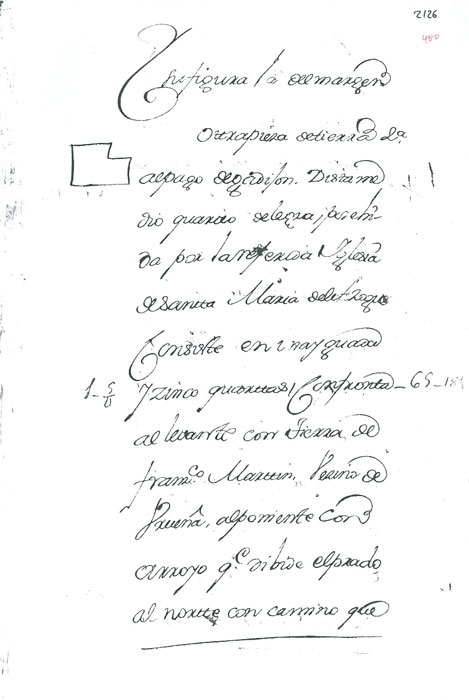 2126
400
Su figura la del margen
Otra pieza de tierra da
al pago Dista me
dio quarto de legua, prohi-
da por la referida Yglesia
de Santa Maria del
Consiste en una yguada
1-5/8 y zinco quartas, Confronta - 65 - 181
al levante con tierra de
Franco. Martin, Vezino de
al poniente con
arroyo q.e dibide el prado
al norte con camino que